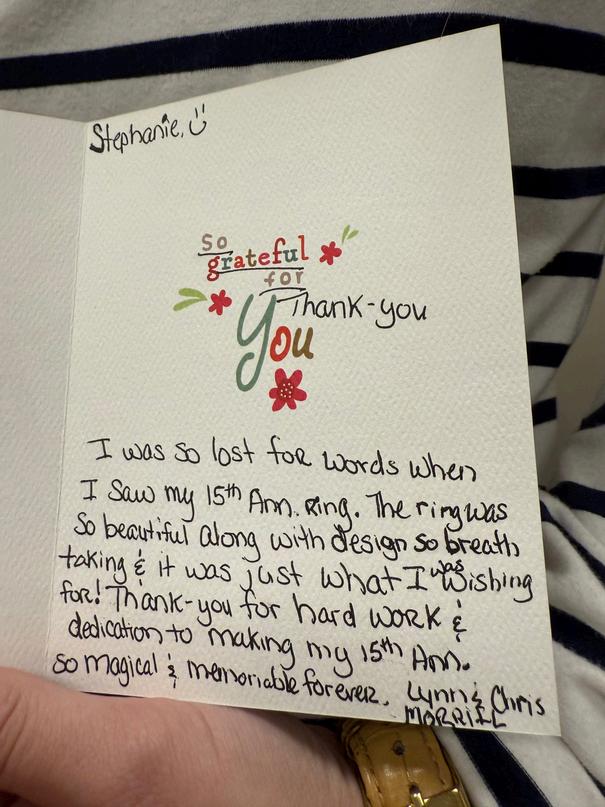 Stephanie, :)
so
grateful
for
Thank-you
You
I was so lost for words when
I saw my 15th Ann. Ring. The ring was
so beautiful along with design so breath
taking & it was just what I was wishing
for! Thank-you for hard work &
dedication to making my 15th Ann.
so magical & memoriable forever. Lynn & Chris
MORRILL